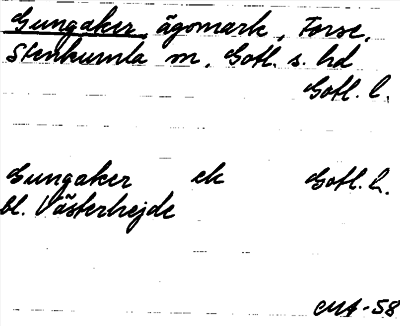 Gungaker, ägomark, Forse,
Stenkumla sn, Gotl. s. hd
Gotl. l.
Gungaker ek Gotl. l.
bl. Västerhejde
CMA-58